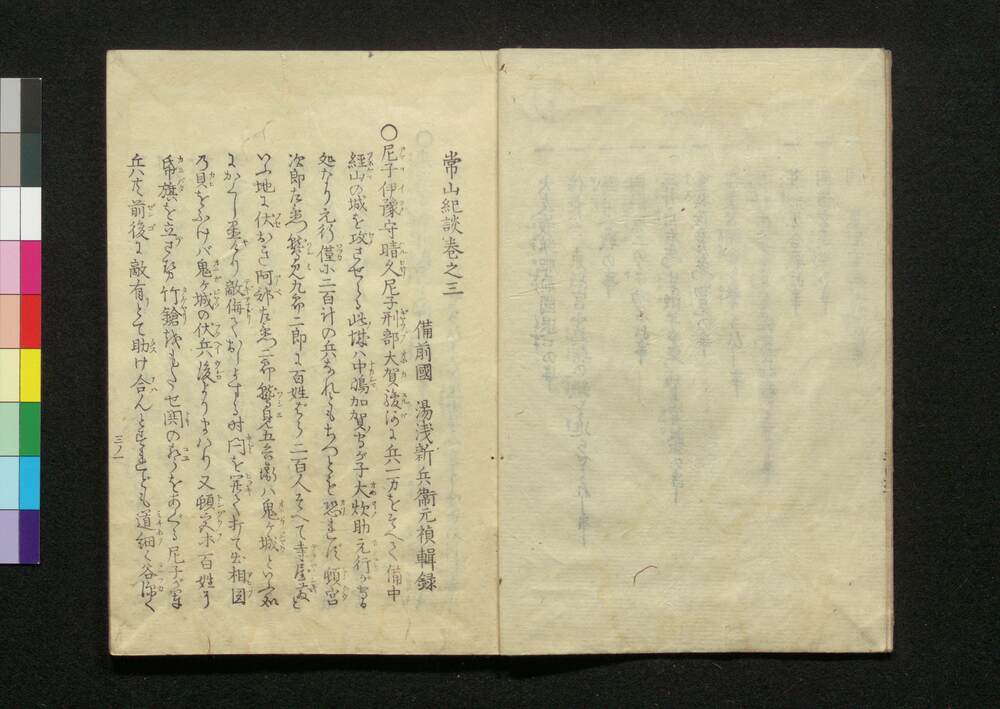 常山紀談巻之三
備前國 湯浅新兵衞元禎輯録
〇尼子伊豫守晴久尼子刑部大賀駿河に兵一万をそへて備中
経山の城を攻させらる此城ハ中嶋加賀守が子大炊助元行が守る
処なり元行僅に二百計の兵なれどもちつとも恐れず頓宮
次郎左衞門鷲見九郎二郎に百姓ばら二百人そへて寺屋敷と
いふ地に伏おき阿部左衞門二郎鷲見五兵衞ハ鬼ヶ城といふ処
にかくし置たり敵侮て打て出相図
の貝をふけバ鬼ヶ城の伏兵後よりまハり又頓宮ハ百姓に
昻旗を立させ竹鎗をもたせ関のこゑをあぐる尼子が軍
兵共前後に敵有とて助け合んとすれども道細く谷深く
三ノ一